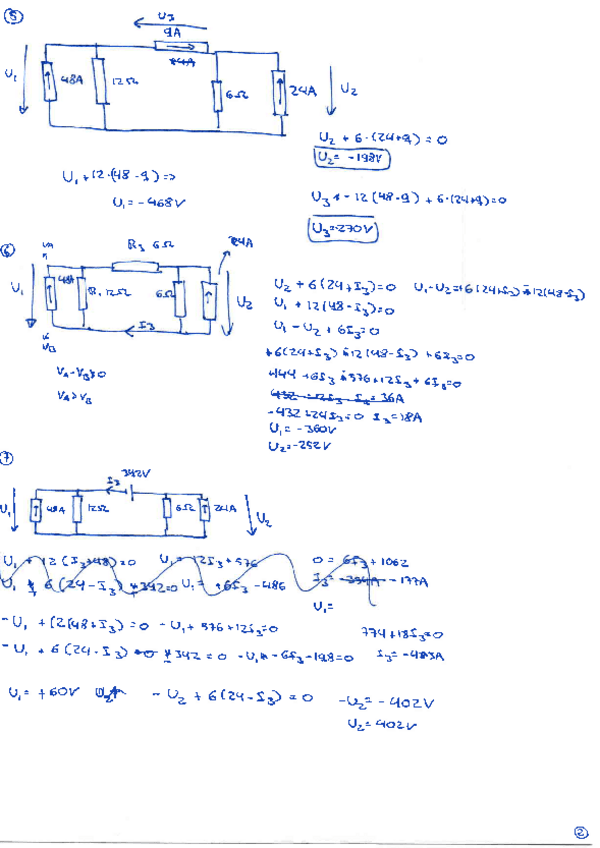 5
U3
9A
24A
U1
48A
12Ω
6Ω
24A
U2
U2 + 6·(24+9) = 0
U2 = -198V
U1 + 12·(48-9) =>
U1 = -468V
U3 + -12(48-9) + 6·(24+9)=0
U3=270V
6
VA
R3 6Ω
24A
U1
48A
R1 12Ω
6Ω
U2
I3
VB
U2 + 6(24+I3)=0 U1-U2=+6(24+I3)-12(48-I3)
U1 + 12(48-I3)=0
U1 - U2 + 6I3=0
+6(24+I3)-12(48-I3) + 6I3=0
VA-VB>0
VA>VB
144 +6I3-576+12I3+6I3=0
432 -12I3 I3= 36A
-432+24I3=0 I3=18A
U1= -360V
U2=-252V
7
I3
342V
U1
48A
12Ω
6Ω
24A
U2
U1 + 12(I3+48)=0 U1=12I3+576 0 = 6I3+1062
U1 + 6(24-I3)+342=0 U1= +6I3-486 I3= -354A -177A
U1=
-U1 + 12(48+I3)=0 -U1+576+12I3=0 774+18I3=0
-U1 + 6(24-I3) + 342=0 -U1 -6I3-198=0 I3=-43A
U1=+60V U2 -U2 + 6(24-I3)=0 -U2=-402V
U2=402V
2